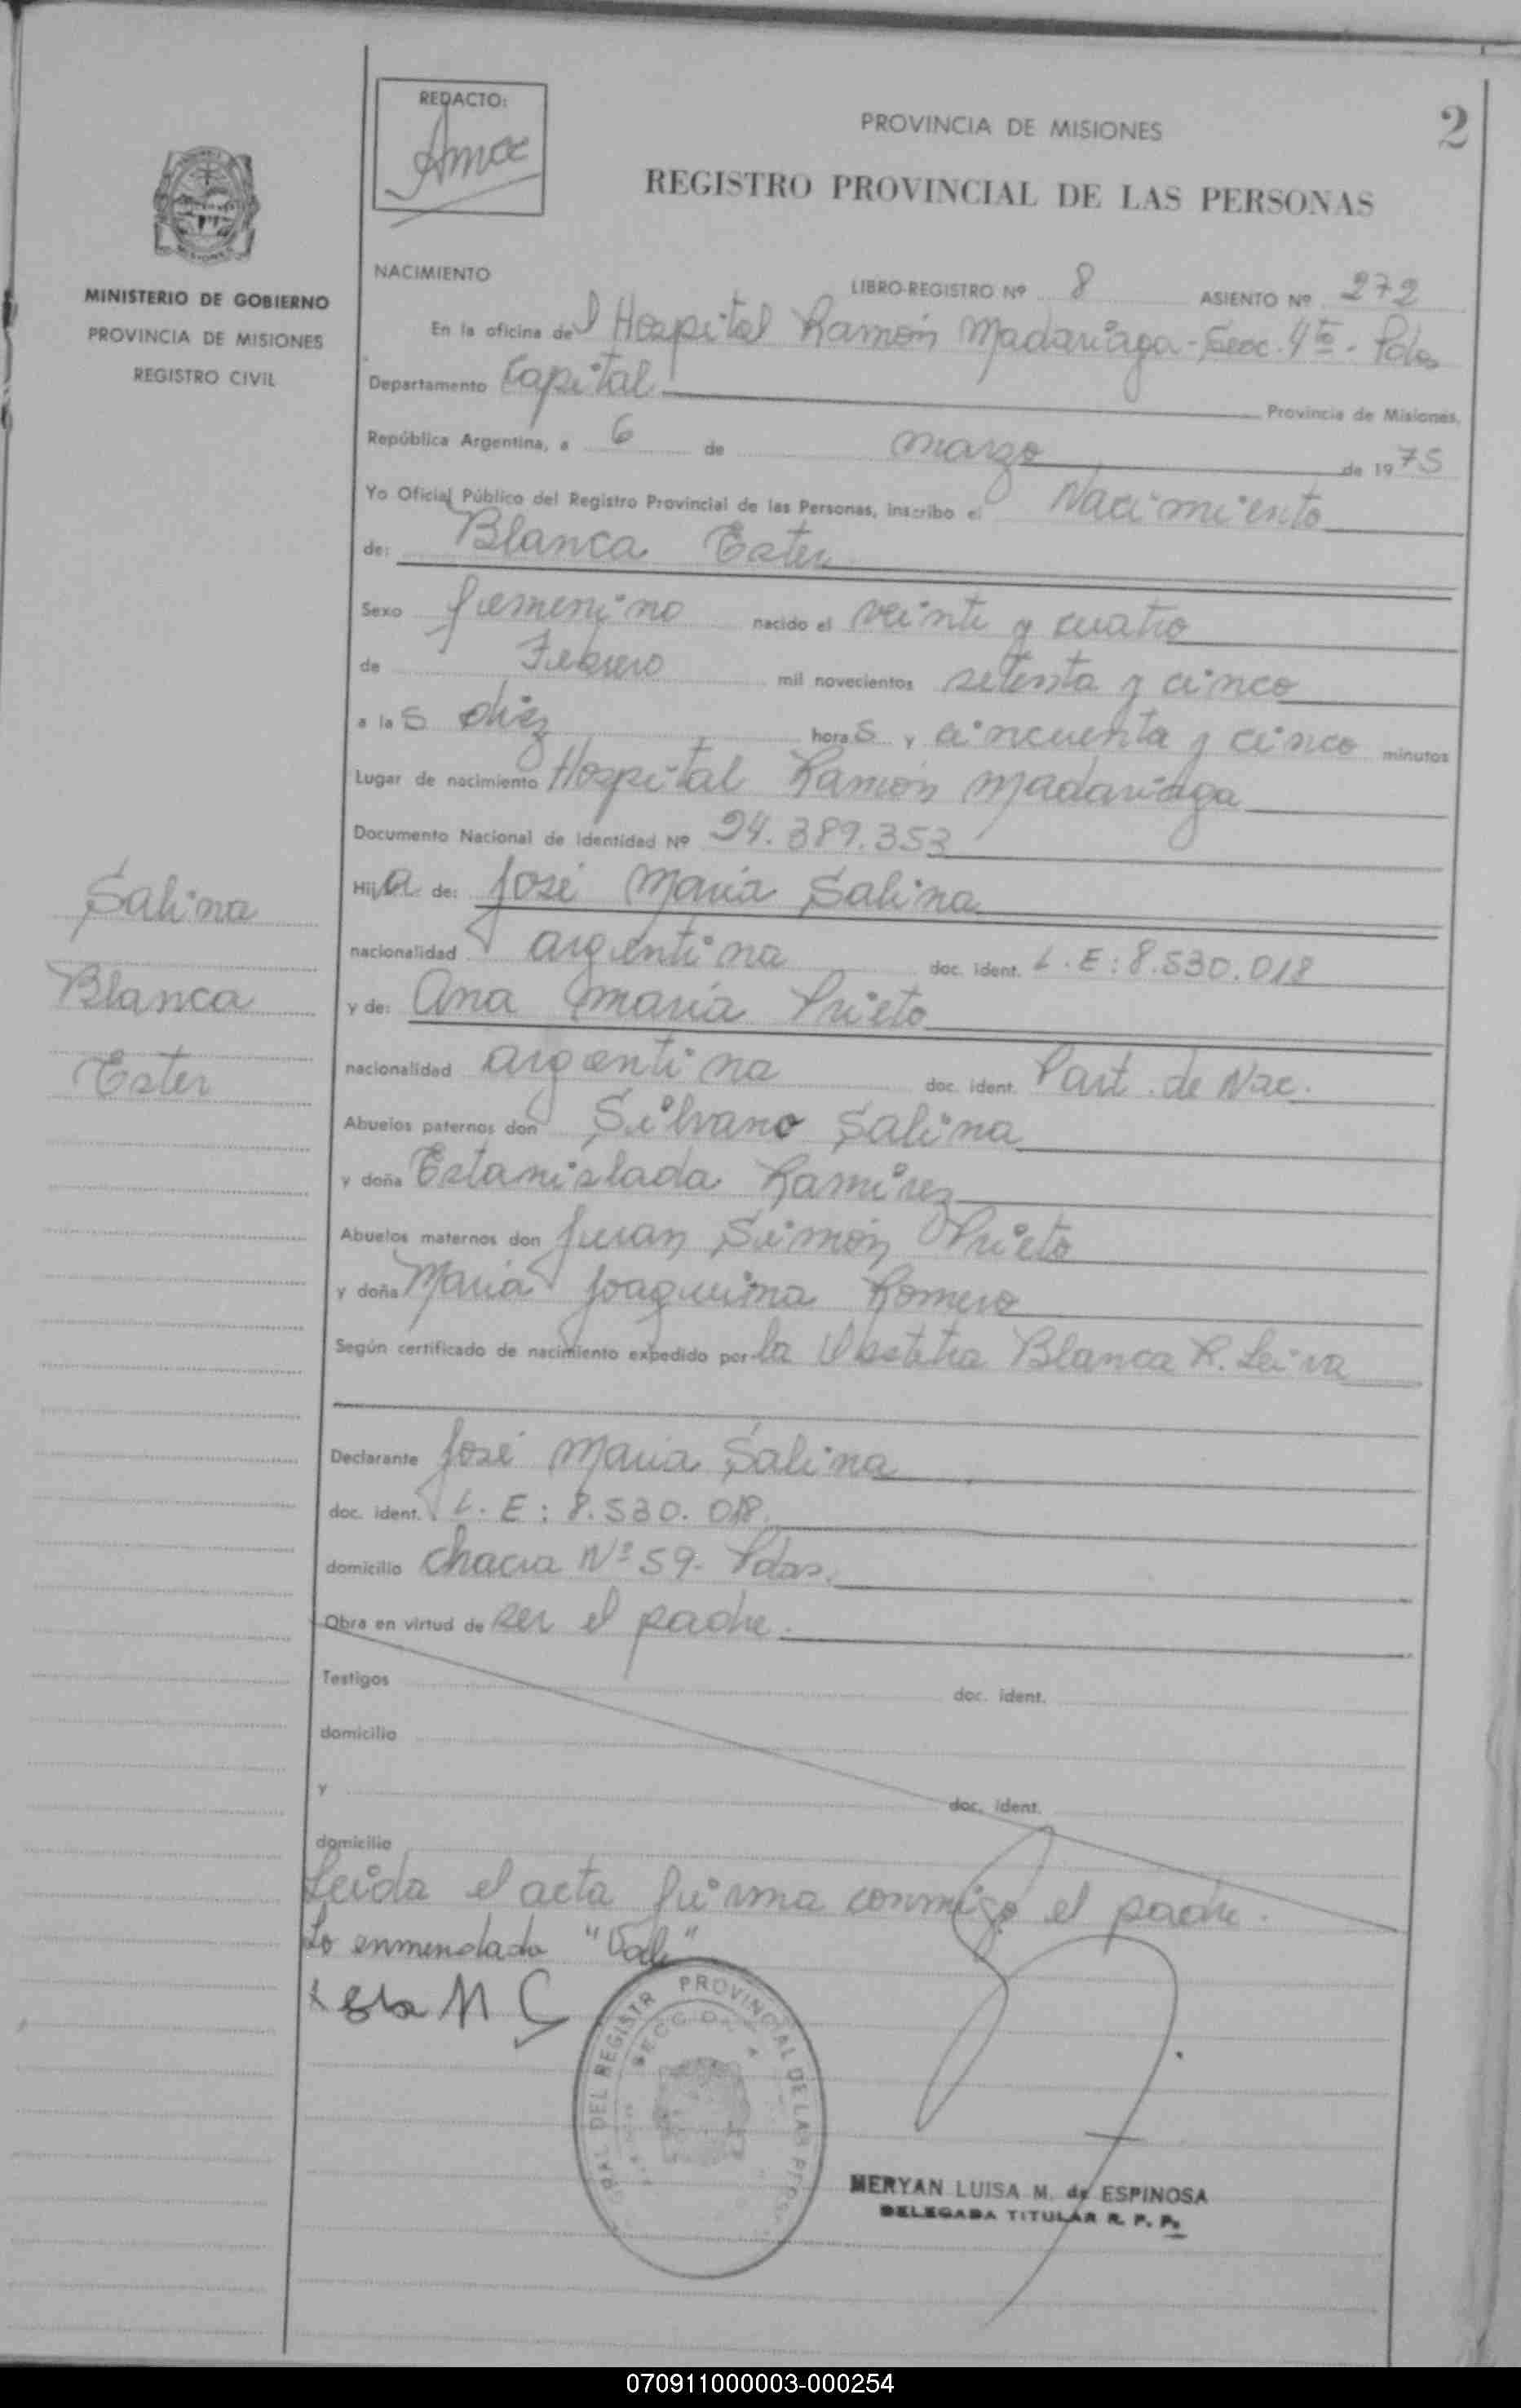 REDACTO:
PROVINCIA DE MISIONES
2
REGISTRO PROVINCIAL DE LAS PERSONAS
MINISTERIO DE GOBIERNO
PROVINCIA DE MISIONES
REGISTRO CIVIL
NACIMIENTO
LIBRO-REGISTRO Nº 8 ASIENTO Nº 272
En la oficina del Hospital Ramón Madariaga - Secc. 4ta - Pdas
Departamento Capital Provincia de Misiones,
República Argentina, a 6 de marzo de 1975
Yo Oficial Público del Registro Provincial de las Personas, inscribo el Nacimiento
de: Blanca Ester
Sexo femenino nacido el veinte y cuatro
de Febrero mil novecientos setenta y cinco
a las diez horas y cincuenta y cinco minutos
Lugar de nacimiento Hospital Ramón Madariaga
Documento Nacional de Identidad Nº 24.389.353
Hija de: José María Salina
nacionalidad argentina doc. ident. L.E: 8.530.018
y de: Ana María Prieto
nacionalidad argentina doc. ident. Part. de Nac.
Abuelos paternos don Silvano Salina
y doña Estanislada Ramírez
Abuelos maternos don Juan Simón Prieto
y doña María Joaquina Romero
Según certificado de nacimiento expedido por la Obstetra Blanca R. Leiva
Declarante José María Salina
doc. ident. L.E: 8.530.018.
domicilio chacra Nº 59- Pdas.
Obra en virtud de ser el padre.
Testigos doc. ident.
domicilio
y doc. ident.
domicilio
Leída el acta firma conmigo el padre.
Lo enmendado "Vale"
Salina
Blanca
Ester
DEL REGISTR PROVINCIAL DE LAS
MERYAN LUISA M. de ESPINOSA
DELEGADA TITULAR R. P. P.
070911000003-000254